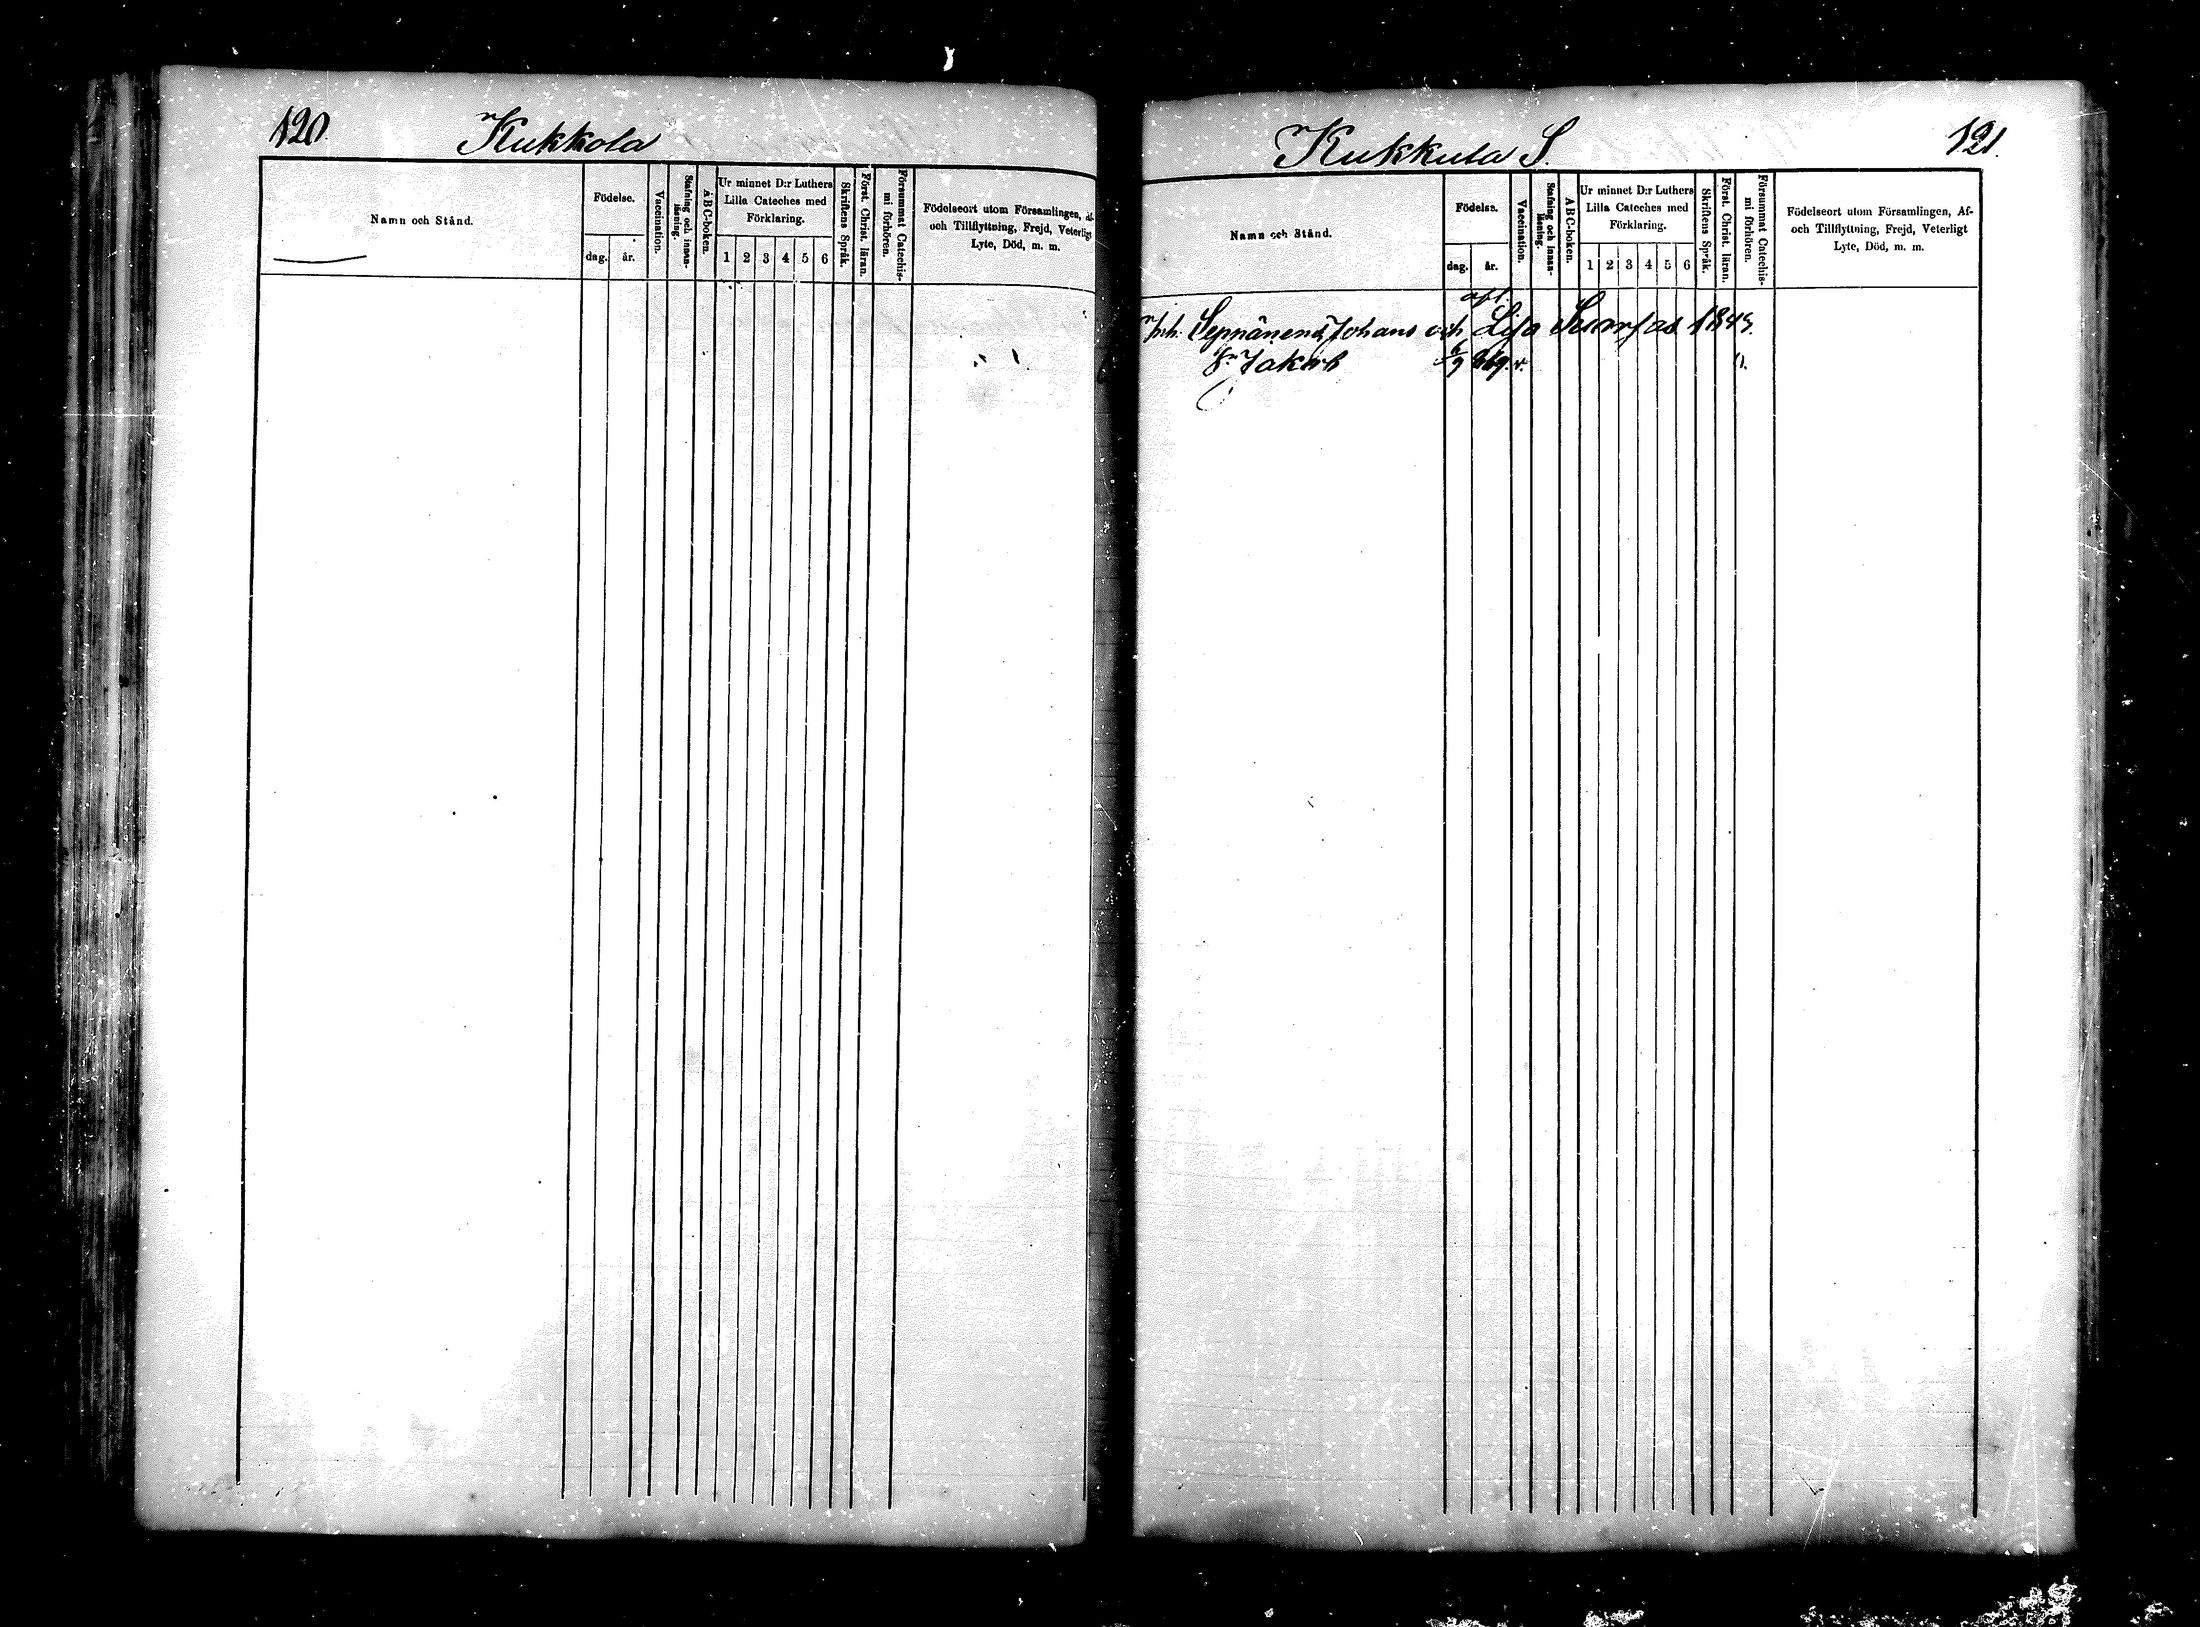 120.
Kukkola
Namn och Stånd.
Födelse.
dag. år.
Vaccination.
Stafning och innan-läsning.
ABC-boken.
Ur minnet D:r Luthers
Lilla Cateches med
Förklaring.
1 2 3 4 5 6
Skriftens Språk.
Först. Christ. läran.
Försummat Catechis-
mi förhören.
Födelseort utom Församlingen, Af-
och Tillflyttning, Frejd, Veterligt
Lyte, Död, m. m.
Kukkula S.
121.
Namn och Stånd.
Födelse.
dag. år.
Vaccination.
Stafning och innan-läsning.
ABC-boken.
Ur minnet D:r Luthers
Lilla Cateches med
Förklaring.
1 2 3 4 5 6
Skriftens Språk.
Först. Christ. läran.
Försummat Catechis-
mi förhören.
Födelseort utom Församlingen, Af-
och Tillflyttning, Frejd, Veterligt
Lyte, Död, m. m.
Inh. Seppänens Johans och Lisa
Jakob 6/9 v.